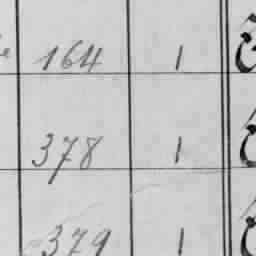 164 1
378 1
379 1